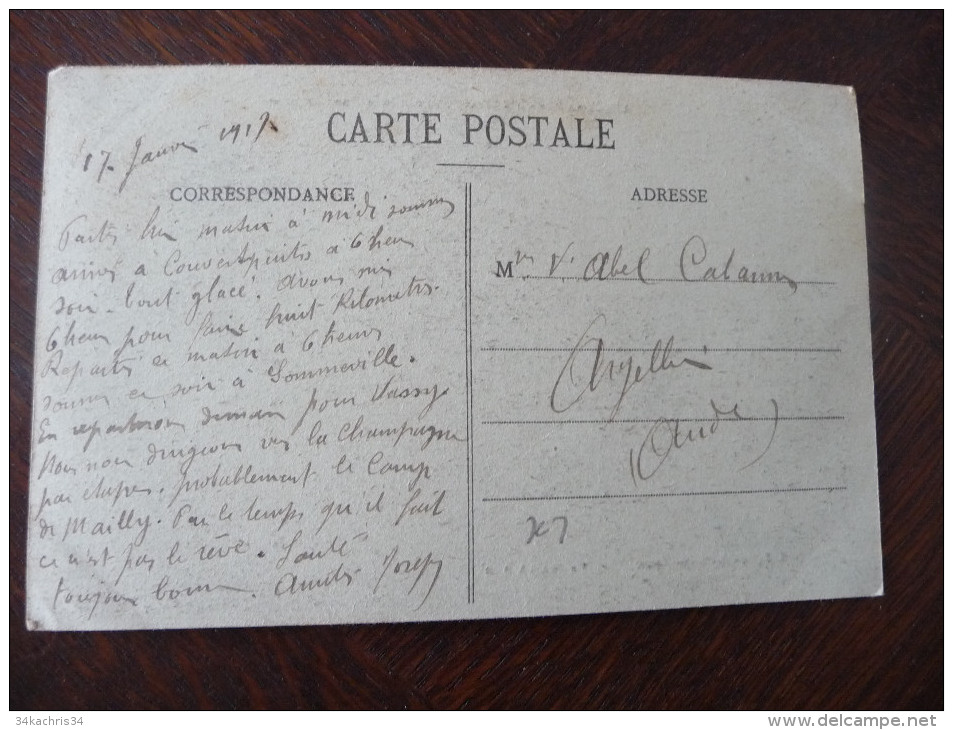 17 Janvier 1917.
CARTE POSTALE
CORRESPONDANCE
Partis hier matin à midi sommes
arrivés à Couvertpuits à 6 heures
soir. tout glacé. Avons mis
6 heures pour faire huit Kilometres.
Repartis ce matin à 6 heures
sommes ce soir à Sommeville.
En repartirons demain pour Vassy.
Nous nous dirigeons vers la Champagne
par étapes. probablement le Camp
de Mailly. Par le temps qu'il fait
ce n'est pas le rêve. Santé
toujours bonne. Amitiés Joseph
ADRESSE
M Abel Cabanes
(Aude)
34kachris34
www.delcampe.net